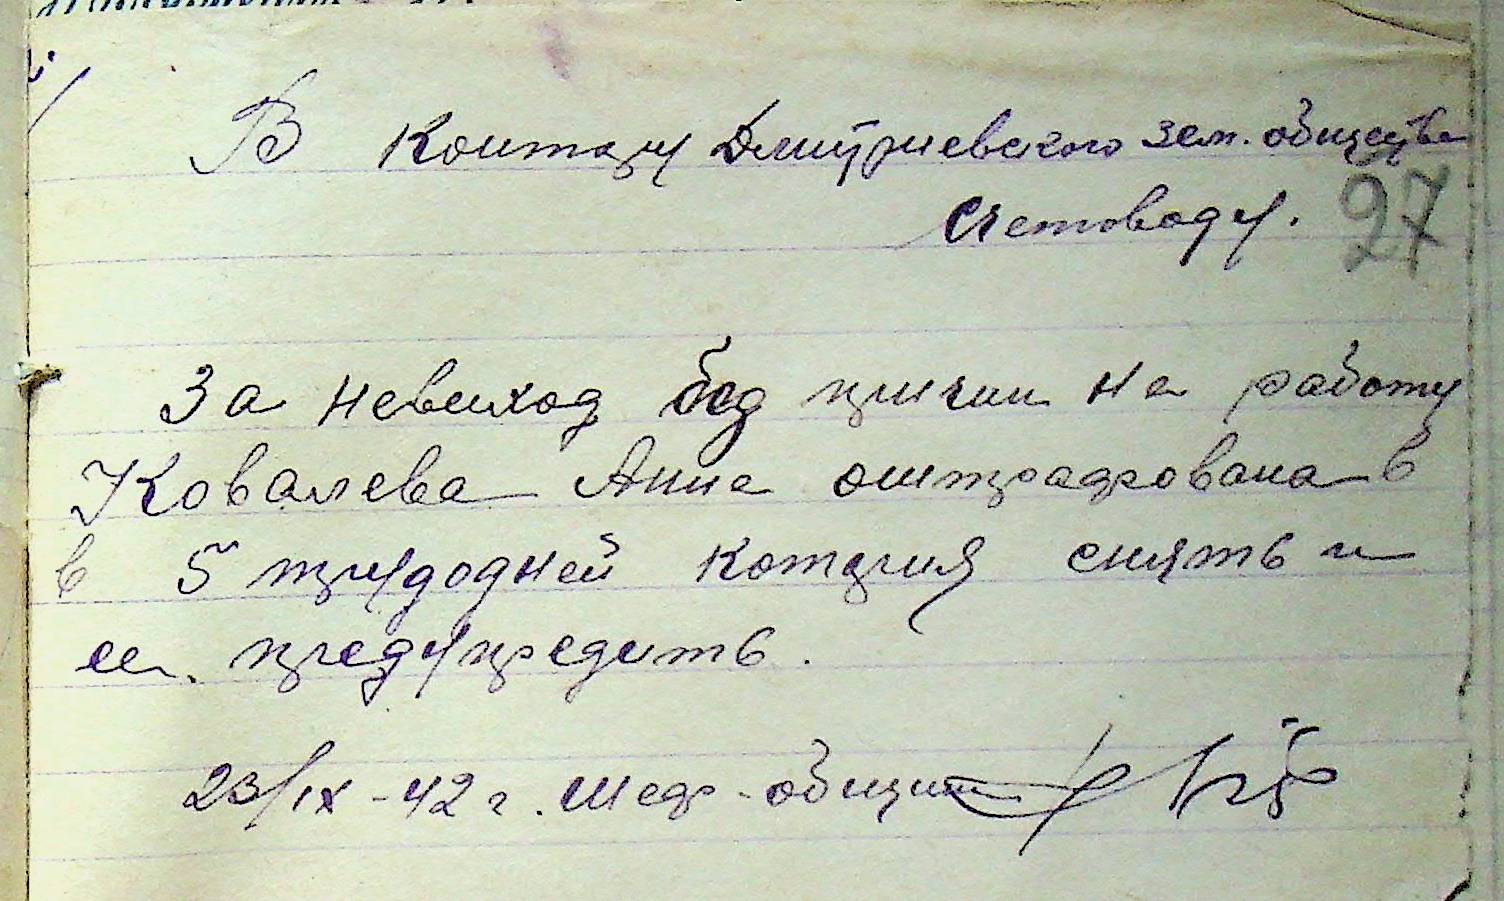 В Контору Дмитриевского зем. общества
Счетоводу.
27
За невиход без причин на работу
Ковалева Анна оштрафована в
в 5 трудодней котория снять и
ее. предупредить.
23/IX - 42 г. Шеф - общин